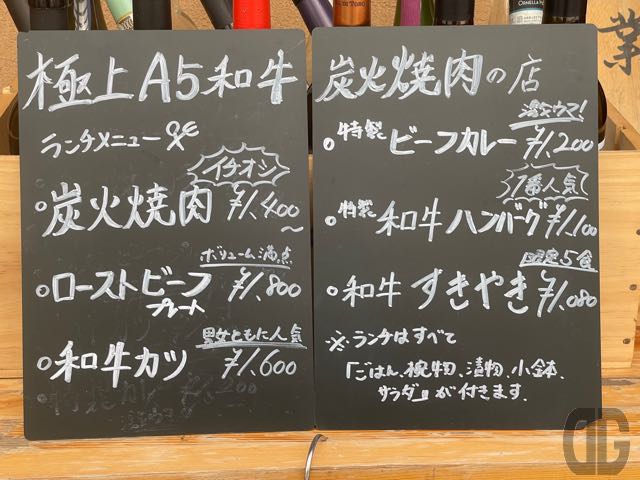 極上A5和牛
ランチメニュー
イチオシ
。炭火焼肉 ¥1,400〜
ボリューム満点
。ローストビーフ ¥1,800
プレート
男女ともに人気
。和牛カツ ¥1,600
炭火焼肉の店
激ウマ!
。特製 ビーフカレー ¥1,200
1番人気
。特製 和牛ハンバーグ ¥1,100
限定5食
。和牛すきやき ¥1,080
※ランチはすべて
「ごはん、椀物、漬物、小鉢、
サラダ」が付きます。
業
DG